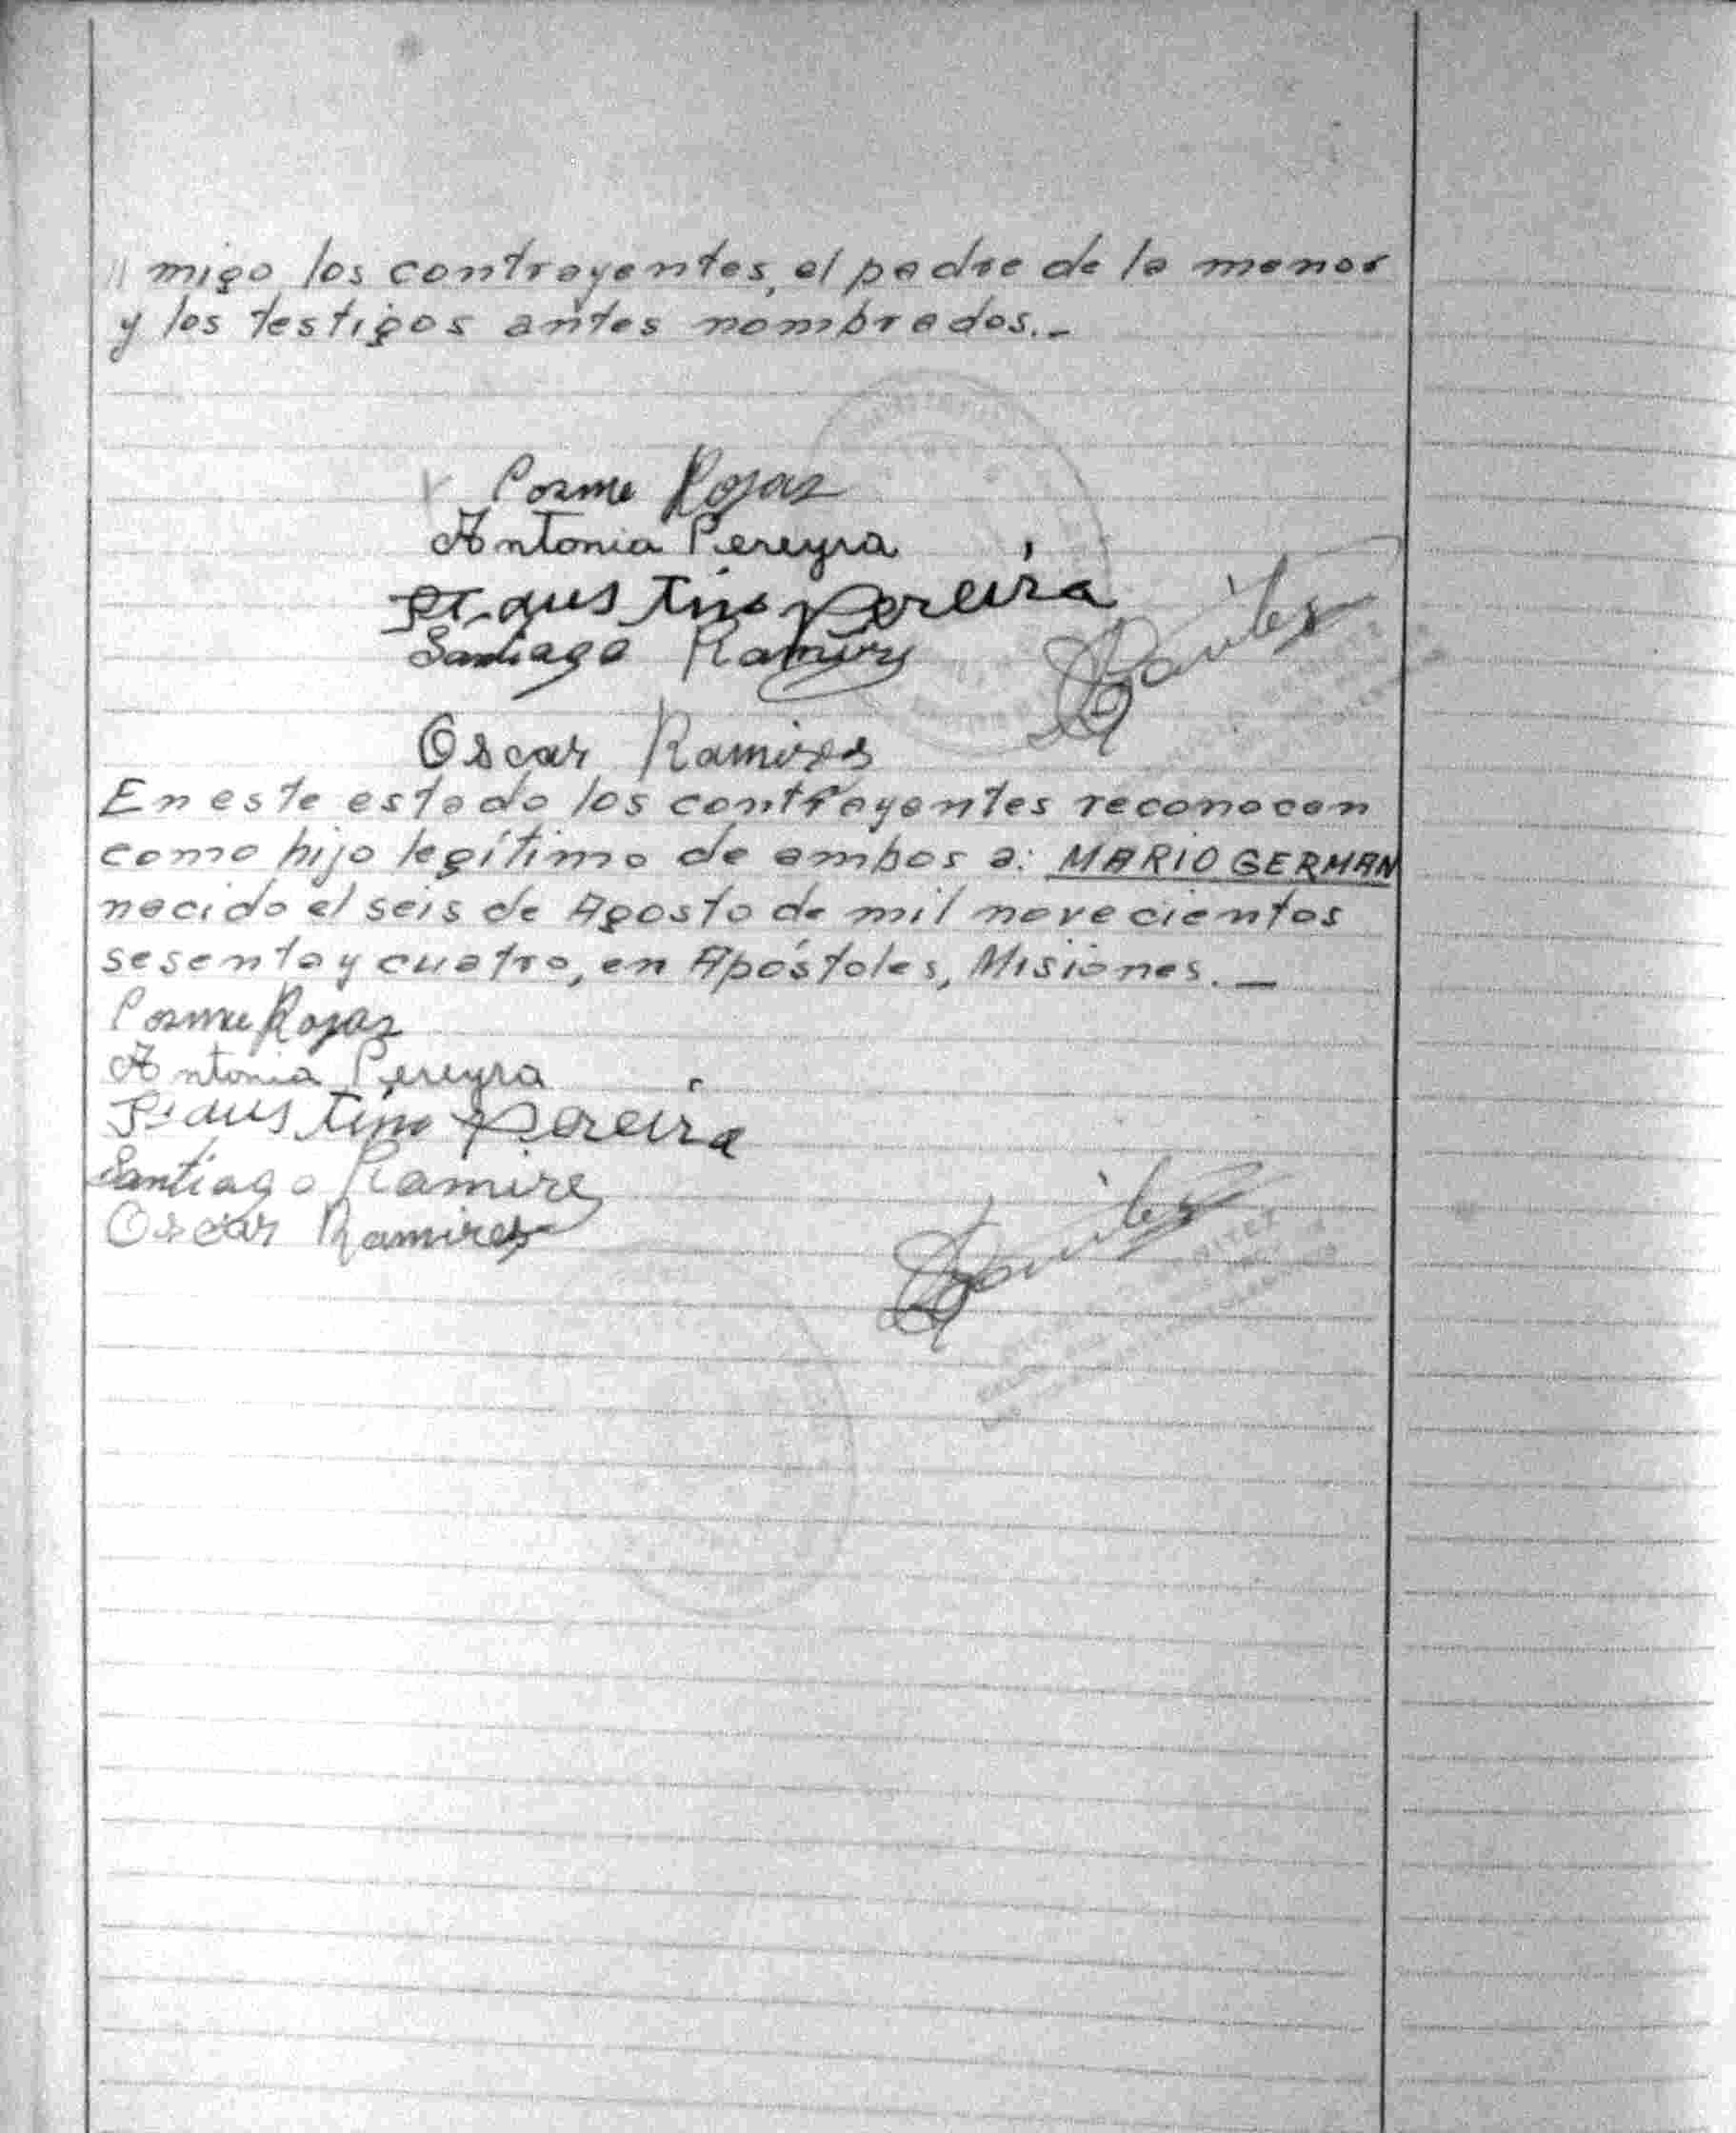 // migo los contrayentes, el padre de la menor
y los testigos antes nombrados._
Cosme Rojas
Antonia Pereyra
Faustino Pereira
Santiago Ramirez
Oscar Ramires
En este estado los contrayentes reconocen
como hijo legítimo de ambos a: MARIO GERMAN
nacido el seis de Agosto de mil novecientos
sesenta y cuatro, en Apóstoles, Misiones._
Cosme Rojas
Antonia Pereyra
Faustino Pereira
Santiago Ramirez
Oscar Ramires